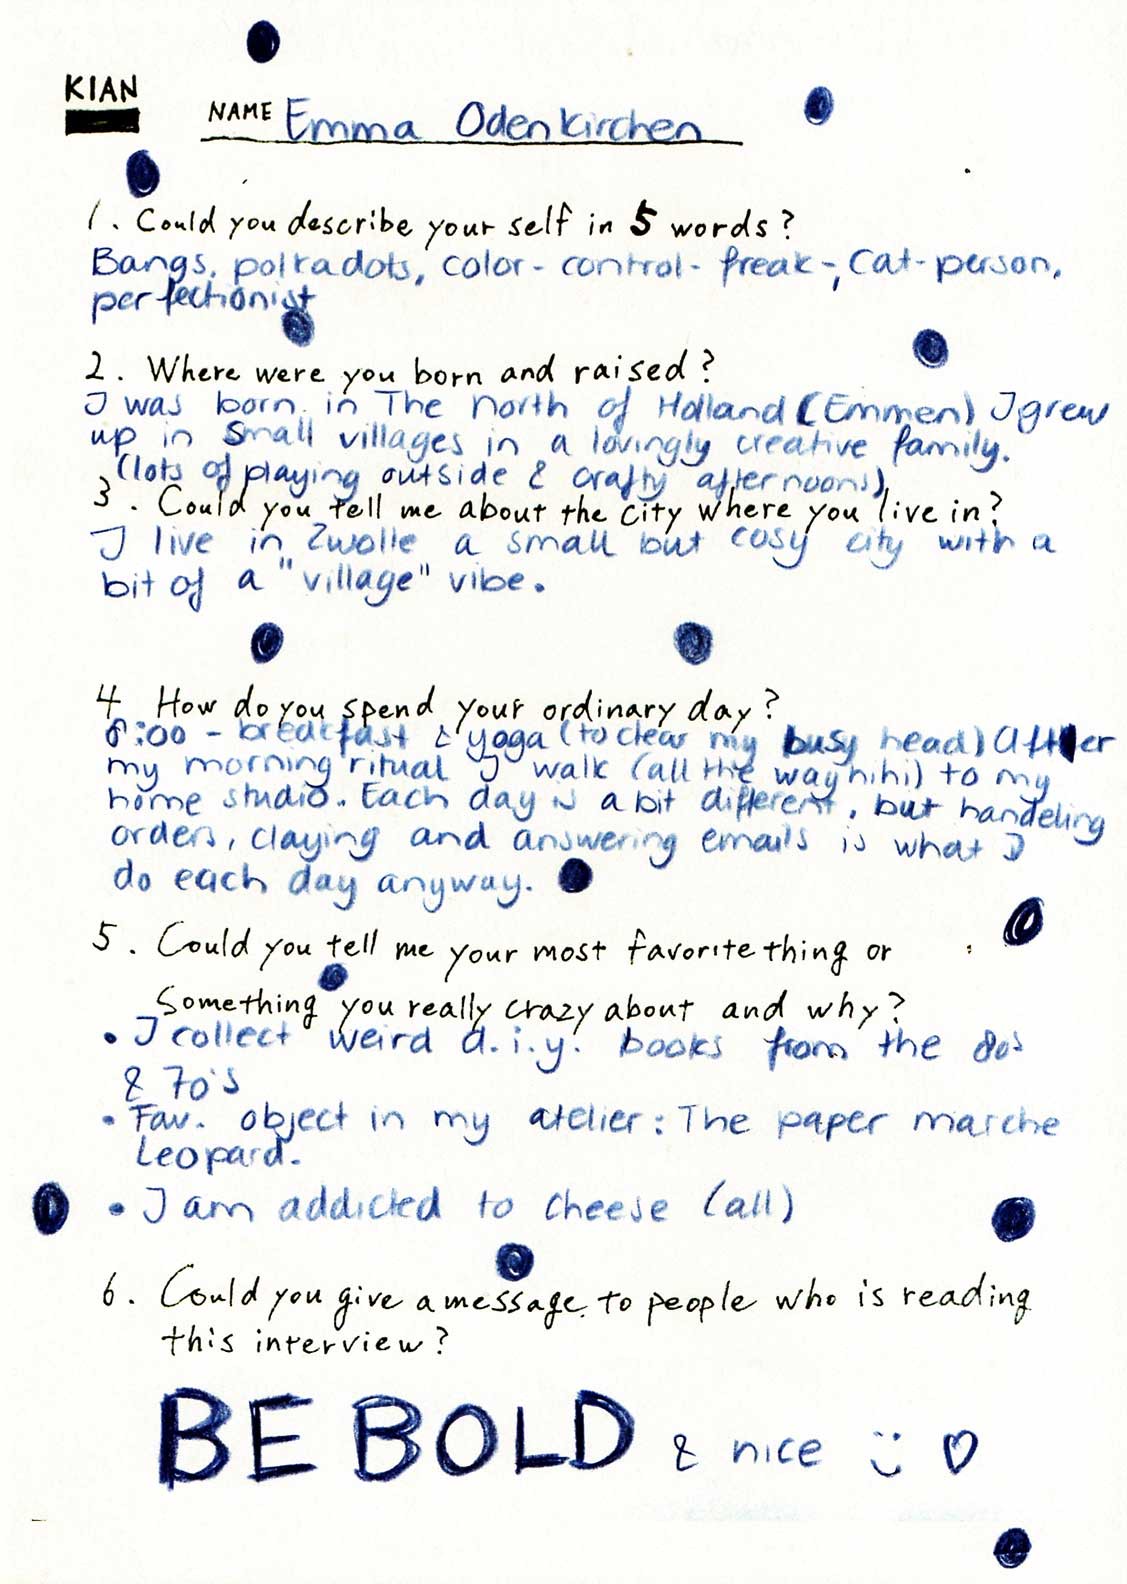 KIAN
NAME Emma Odenkirchen
1. Could you describe your self in 5 words?
Bangs, polkadots, color-control-freak-, Cat-person,
perfectionist
2. Where were you born and raised?
I was born in The North of Holland (Emmen) I grew
up in small villages in a lovingly creative family.
(lots of playing outside & crafty afternoons)
3. Could you tell me about the city where you live in?
I live in Zwolle a small but cosy city with a
bit of a "village" vibe.
4 How do you spend your ordinary day?
:00 - breakfast & yoga (to clear my busy head) After
my morning ritual I walk (all the way hihi) to my
home studio. Each day is a bit different, but handeling
orders, claying and answering emails is what I
do each day anyway.
5. Could you tell me your most favorite thing or
Something you really crazy about and why?
• I collect weird d.i.y. books from the 80s
& 70's
• Fav. object in my atelier: The paper marche
Leopard.
• I am addicted to cheese (all)
6. Could you give a message to people who is reading
this interview?
BE BOLD & nice :) ♡